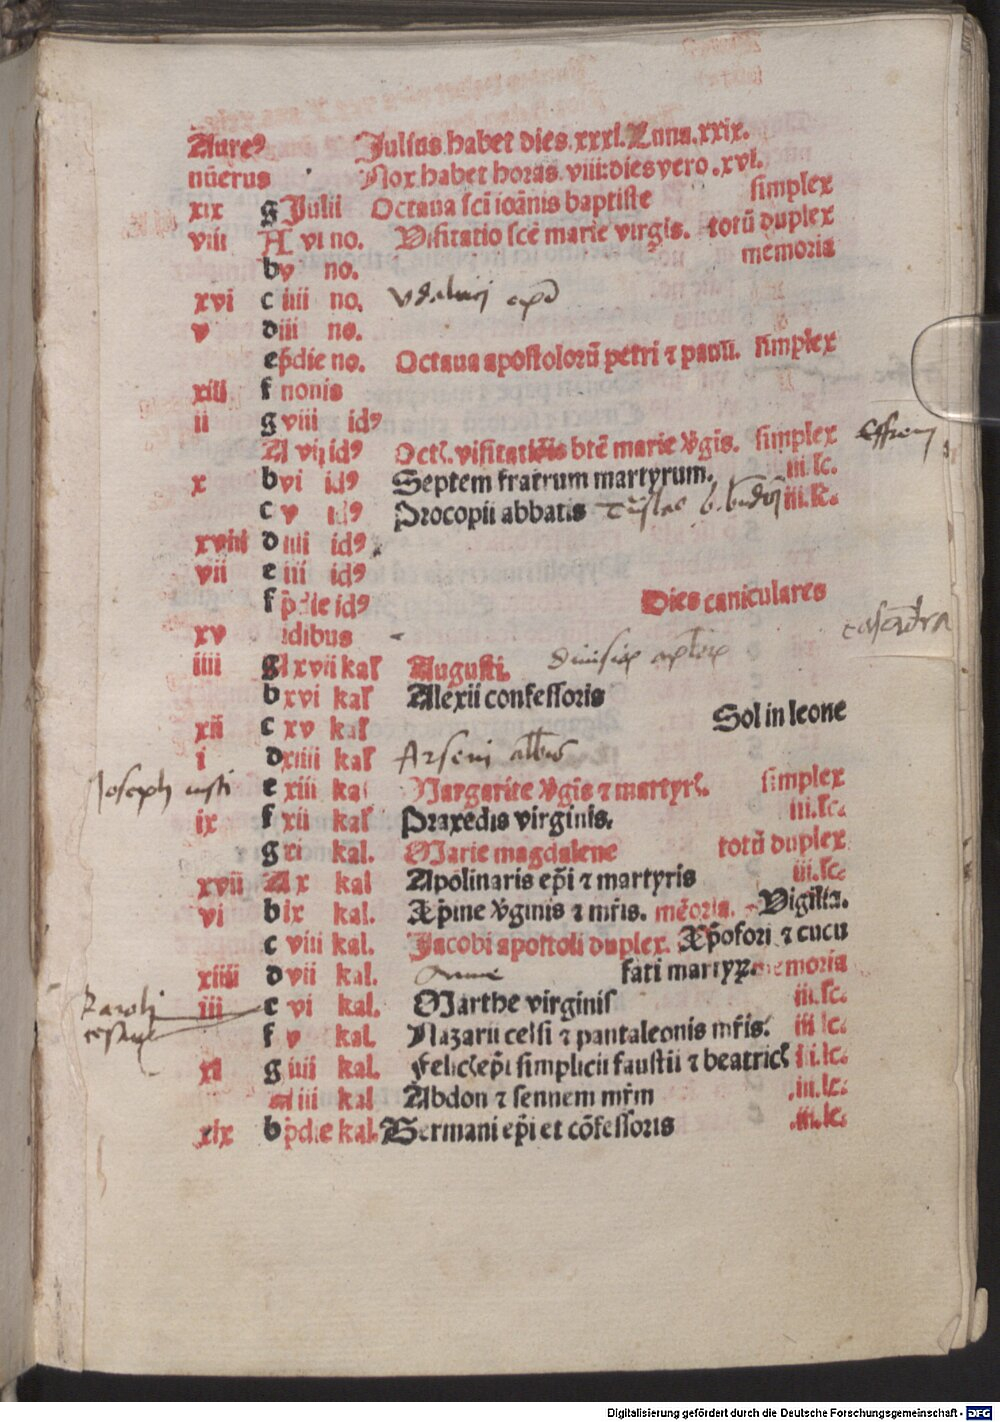 Aureꝰ Julius habet dies.xxxi.Luna.xxix.
nūerus Nox habet horas.viii:dies vero.xvi.
xix g Julii Octaua sci̅ ioānis baptiste simplex
viii A vi no. Visitatio sce̅ marie virgis. totū duplex
b v no. memoria
xvi c iiii no. Vdalrici ep̅i
v d iii no.
e p̄die no. Octaua apostolorū petri ⁊ pauli. simplex
xiii f nonis
ii g viii idꝰ
A vii idꝰ Oct. visitatiōis bte̅ marie v̄gis. simplex Effrem
x b vi idꝰ Septem fratrum martyrum. iii.lc.
c v idꝰ Procopii abbatis iii.lc.
xviii d iiii idꝰ
vii e iii idꝰ
f p̄die idꝰ Dies caniculares
xv idibus
iiii g A xvii kal Augusti.
b xvi kal Alexii confessoris
xii c xv kal Sol in leone
i d xiiii kal Arsenii
Joseph iusti e xiii kal Margarite v̄gis ⁊ martyr. simplex
ix f xii kal Praxedis virginis. iii.lc.
g xi kal. Marie magdalene totū duplex
xvii A x kal Apolinaris ep̅i ⁊ martyris iii.lc.
vi b ix kal. Xp̅ine v̄ginis ⁊ mr̅is. me̅oria. Vigilia.
c viii kal. Jacobi apostoli duplex. Xp̅ofori ⁊ cucu
xiiii d vii kal. Anne fati martyꝝ memoria
Karoli iii e vi kal. Marthe virginis iii.lc.
f v kal. Nazarii celsi ⁊ pantaleonis mr̅is. iii lc.
xi g iiii kal. Felic̄ ep̅i simplicii faustii ⁊ beatric̄ iii.lc.
A iii kal Abdon ⁊ sennem mr̅m .iii.lc.
xix b p̄die kal. Germani ep̅i et cōfessoris .iii.lc.
Digitalisierung gefördert durch die Deutsche Forschungsgemeinschaft - DFG